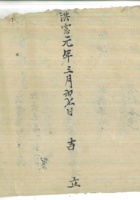 洪憲元年三月初七日 吉立